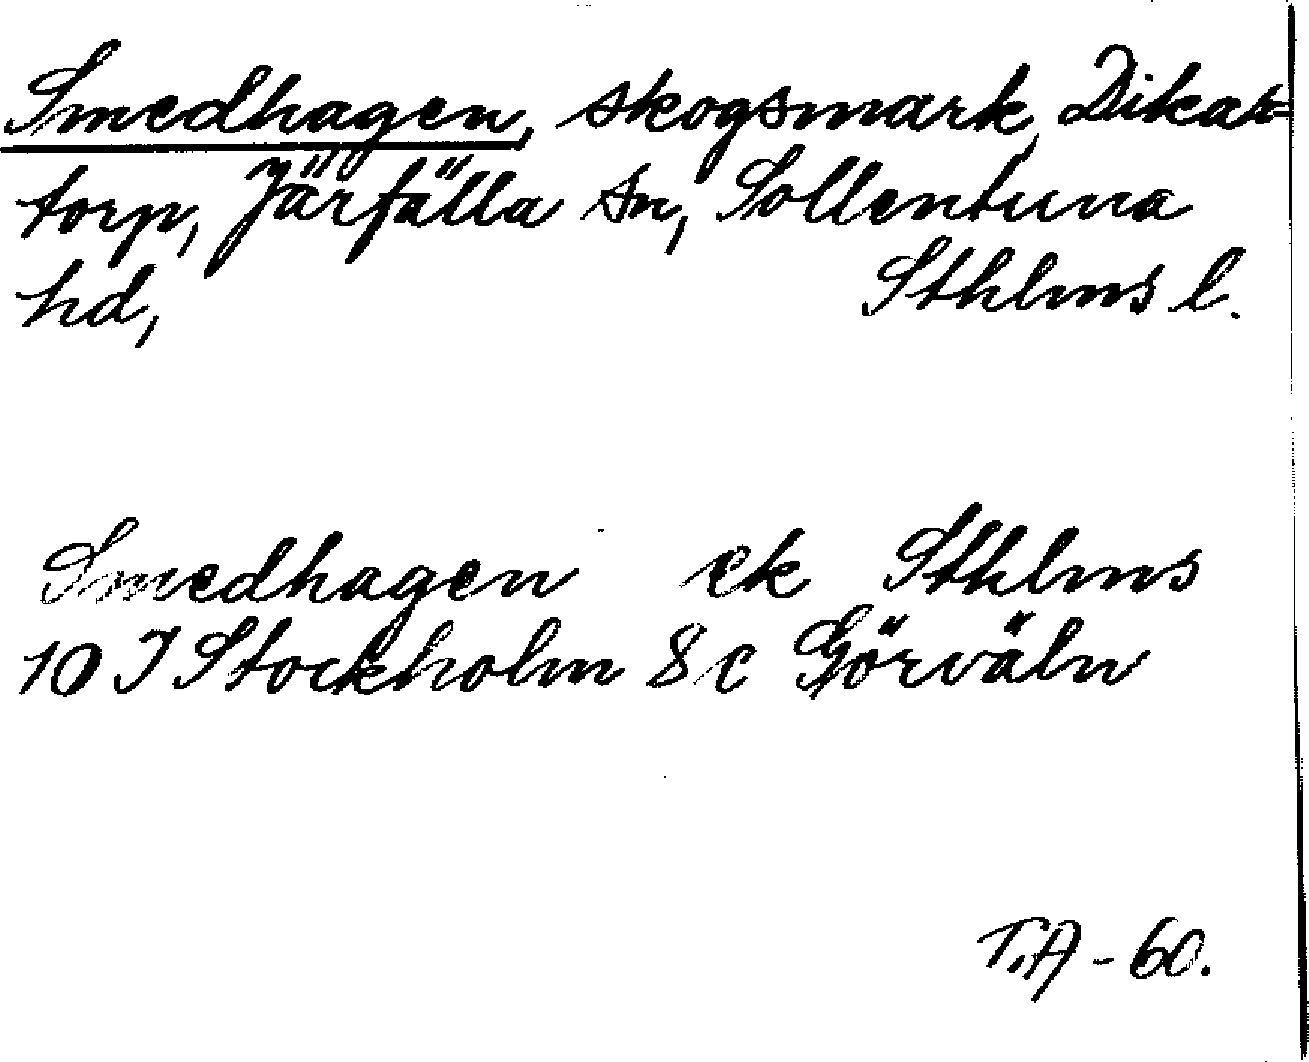 Smedhagen, skogsmark, Dikar=
torp, Järfälla sn, Sollentuna
hd, Sthlms l.
Smedhagen ek Sthlms
10 I Stockholm 8 c Görväln
T.A - 60.